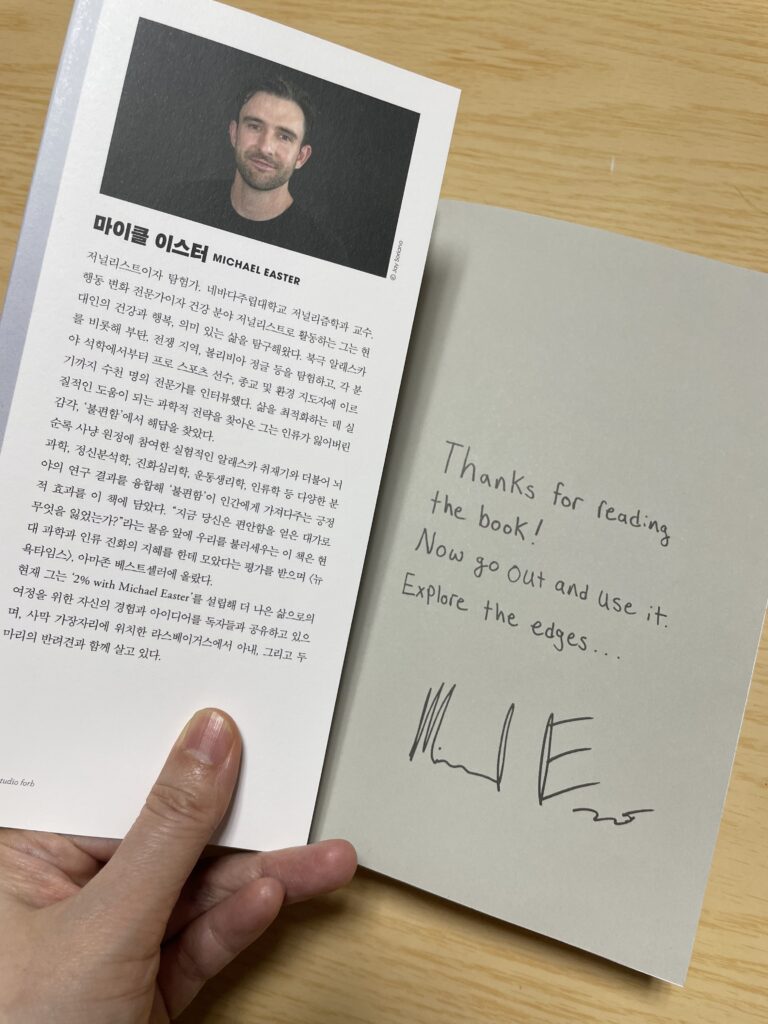 © Jay Soriano
마이클 이스터 MICHAEL EASTER
저널리스트이자 탐험가. 네바다주립대학교 저널리즘학과 교수.
행동 변화 전문가이자 건강 분야 저널리스트로 활동하는 그는 현
대인의 건강과 행복, 의미 있는 삶을 탐구해왔다. 북극 알래스카
를 비롯해 부탄, 전쟁 지역, 볼리비아 정글 등을 탐험하고, 각 분
야 석학에서부터 프로 스포츠 선수, 종교 및 환경 지도자에 이르
기까지 수천 명의 전문가를 인터뷰했다. 삶을 최적화하는 데 실
질적인 도움이 되는 과학적 전략을 찾아온 그는 인류가 잃어버린
감각, ‘불편함’에서 해답을 찾았다.
순록 사냥 원정에 참여한 실험적인 알래스카 취재기와 더불어 뇌
과학, 정신분석학, 진화심리학, 운동생리학, 인류학 등 다양한 분
야의 연구 결과를 융합해 ‘불편함’이 인간에게 가져다주는 긍정
적 효과를 이 책에 담았다. “지금 당신은 편안함을 얻은 대가로
무엇을 잃었는가?”라는 물음 앞에 우리를 불러세우는 이 책은 현
대 과학과 인류 진화의 지혜를 한데 모았다는 평가를 받으며 〈뉴
욕타임스〉, 아마존 베스트셀러에 올랐다.
현재 그는 ‘2% with Michael Easter’를 설립해 더 나은 삶으로의
여정을 위한 자신의 경험과 아이디어를 독자들과 공유하고 있으
며, 사막 가장자리에 위치한 라스베이거스에서 아내, 그리고 두
마리의 반려견과 함께 살고 있다.
studio forb
Thanks for reading
the book!
Now go out and use it.
Explore the edges...